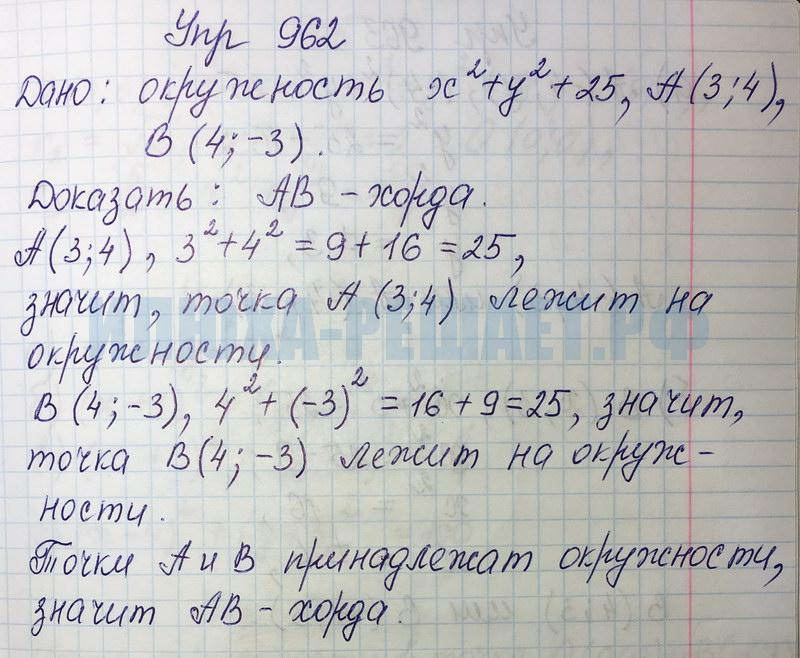 Упр 962
Дано: окружность x²+y²+25, A(3;4),
B(4;-3).
Доказать: AB - хорда.
A(3;4), 3²+4²=9+16=25,
значит, точка A(3;4) лежит на
ИЛЮХА-РЕШАЕТ.РФ
окружности.
B(4;-3), 4²+(-3)²=16+9=25, значит,
точка B(4;-3) лежит на окруж-
ности.
Точки A и B принадлежат окружности,
значит AB - хорда.